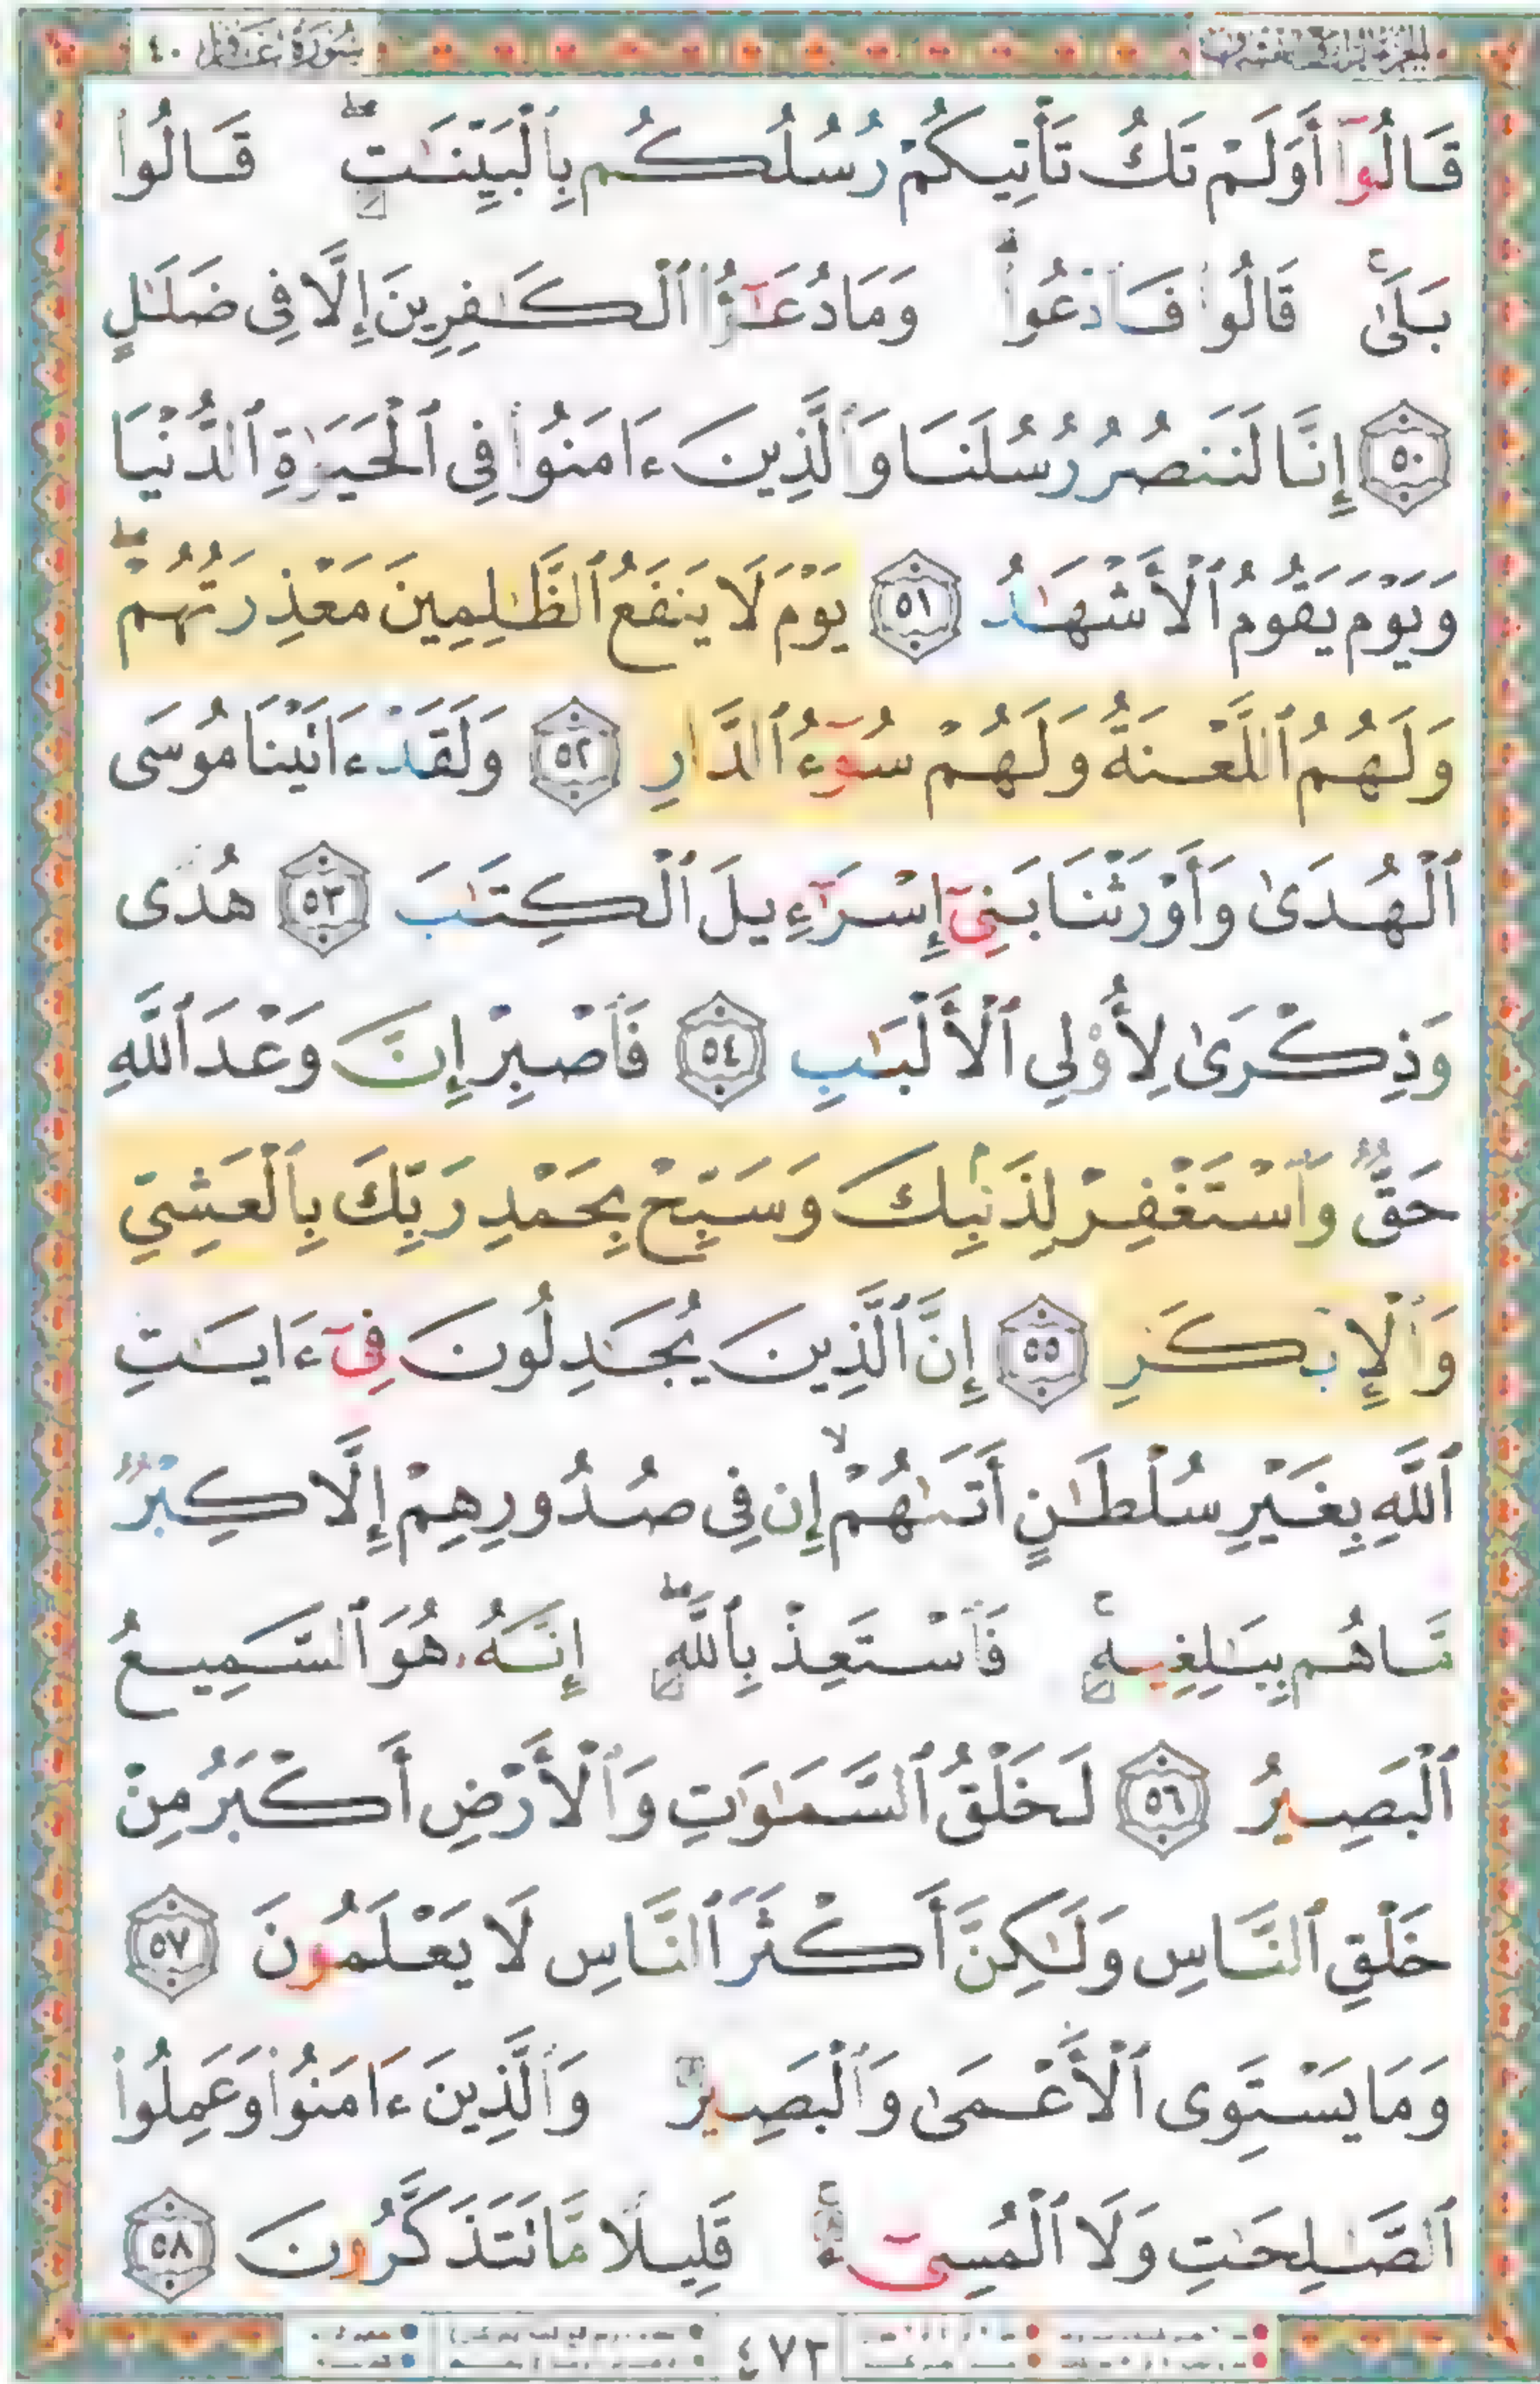 سُورَةُ غَافِرٍ ٤٠
قَالُوٓا۟ أَوَلَمْ تَكُ تَأْتِيكُمْ رُسُلُكُم بِٱلْبَيِّنَـٰتِ ۖ قَالُوا۟
بَلَىٰ ۚ قَالُوا۟ فَٱدْعُوا۟ ۗ وَمَا دُعَـٰٓؤُا۟ ٱلْكَـٰفِرِينَ إِلَّا فِى ضَلَـٰلٍ
٥٠ إِنَّا لَنَنصُرُ رُسُلَنَا وَٱلَّذِينَ ءَامَنُوا۟ فِى ٱلْحَيَوٰةِ ٱلدُّنْيَا
وَيَوْمَ يَقُومُ ٱلْأَشْهَـٰدُ ٥١ يَوْمَ لَا يَنفَعُ ٱلظَّـٰلِمِينَ مَعْذِرَتُهُمْ ۖ
وَلَهُمُ ٱللَّعْنَةُ وَلَهُمْ سُوٓءُ ٱلدَّارِ ٥٢ وَلَقَدْ ءَاتَيْنَا مُوسَى
ٱلْهُدَىٰ وَأَوْرَثْنَا بَنِىٓ إِسْرَٰٓءِيلَ ٱلْكِتَـٰبَ ٥٣ هُدًى
وَذِكْرَىٰ لِأُو۟لِى ٱلْأَلْبَـٰبِ ٥٤ فَٱصْبِرْ إِنَّ وَعْدَ ٱللَّهِ
حَقٌّ وَٱسْتَغْفِرْ لِذَنۢبِكَ وَسَبِّحْ بِحَمْدِ رَبِّكَ بِٱلْعَشِىِّ
وَٱلْإِبْكَـٰرِ ٥٥ إِنَّ ٱلَّذِينَ يُجَـٰدِلُونَ فِىٓ ءَايَـٰتِ
ٱللَّهِ بِغَيْرِ سُلْطَـٰنٍ أَتَىٰهُمْ ۙ إِن فِى صُدُورِهِمْ إِلَّا كِبْرٌ
مَّا هُم بِبَـٰلِغِيهِ ۚ فَٱسْتَعِذْ بِٱللَّهِ ۖ إِنَّهُۥ هُوَ ٱلسَّمِيعُ
ٱلْبَصِيرُ ٥٦ لَخَلْقُ ٱلسَّمَـٰوَٰتِ وَٱلْأَرْضِ أَكْبَرُ مِنْ
خَلْقِ ٱلنَّاسِ وَلَـٰكِنَّ أَكْثَرَ ٱلنَّاسِ لَا يَعْلَمُونَ ٥٧
وَمَا يَسْتَوِى ٱلْأَعْمَىٰ وَٱلْبَصِيرُ وَٱلَّذِينَ ءَامَنُوا۟ وَعَمِلُوا۟
ٱلصَّـٰلِحَـٰتِ وَلَا ٱلْمُسِىٓءُ ۚ قَلِيلًا مَّا تَتَذَكَّرُونَ ٥٨
٤٧٣